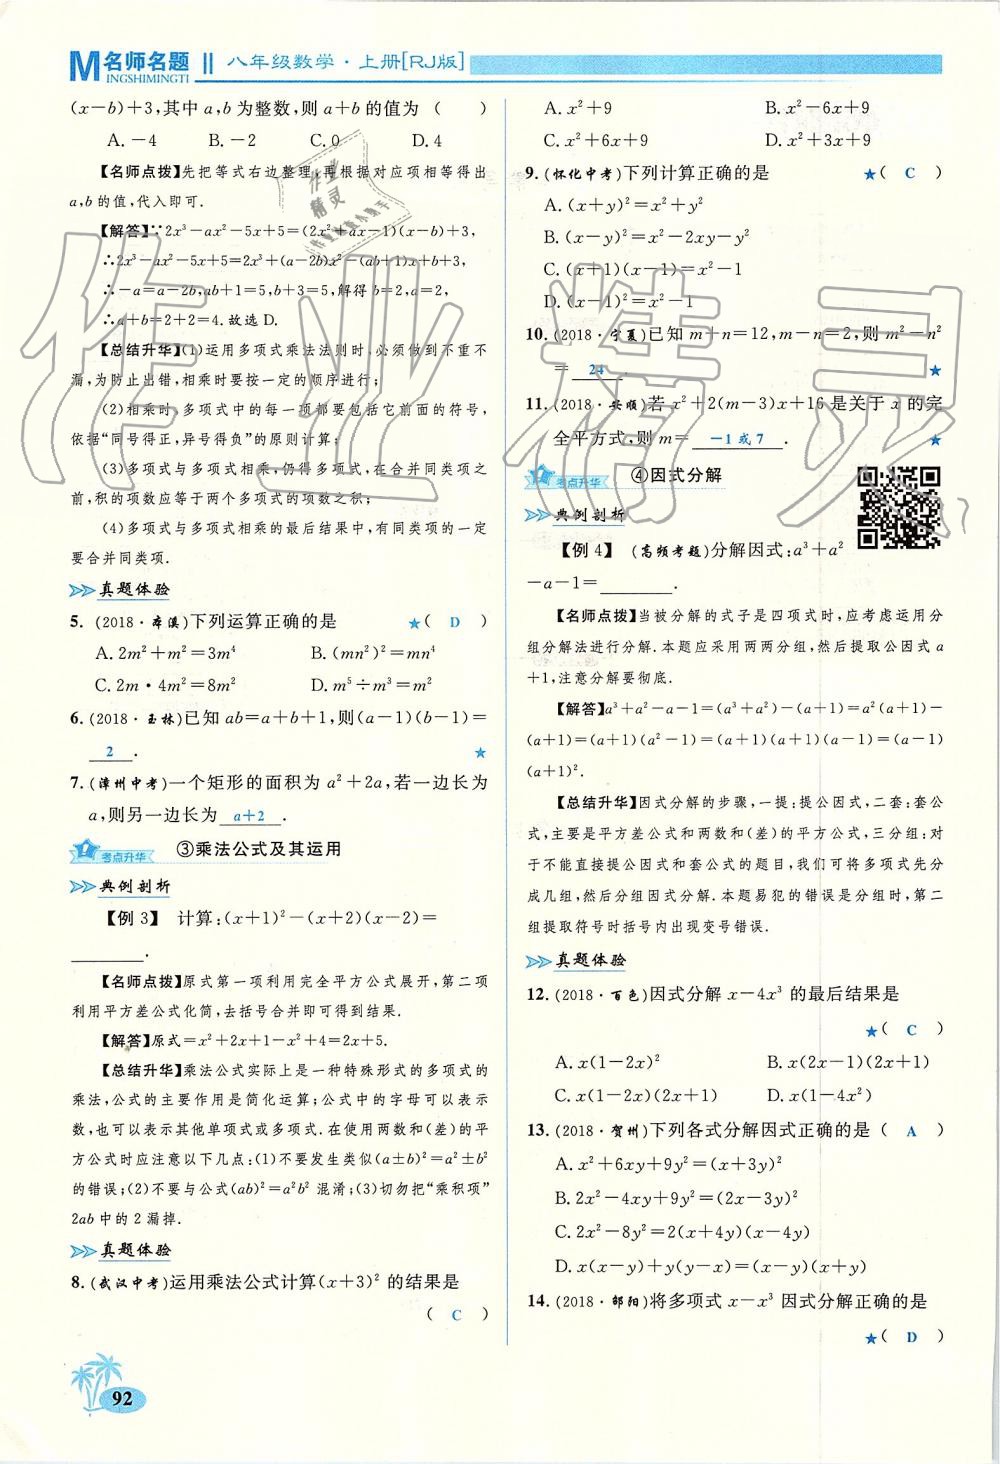 M名师名题 INGSHIMINGTI 八年级数学·上册[RJ版]
(x-b)+3,其中a,b为整数,则a+b的值为 ( )
A.-4 B.-2 C.0 D.4
【名师点拨】先把等式右边整理,再根据对应项相等得出
a,b的值,代入即可.
【解答】∵2x³-ax²-5x+5=(2x²+ax-1)(x-b)+3,
∴2x³-ax²-5x+5=2x³+(a-2b)x²-(ab+1)x+b+3,
∴-a=a-2b,ab+1=5,b+3=5,解得b=2,a=2,
∴a+b=2+2=4.故选D.
【总结升华】(1)运用多项式乘法法则时,必须做到不重不
漏,为防止出错,相乘时要按一定的顺序进行;
(2)相乘时,多项式中的每一项都要包括它前面的符号,
依据“同号得正,异号得负”的原则计算;
(3)多项式与多项式相乘,仍得多项式,在合并同类项之
前,积的项数应等于两个多项式的项数之积;
(4)多项式与多项式相乘的最后结果中,有同类项的一定
要合并同类项.
真题体验
5. (2018·本溪)下列运算正确的是 ★( D )
A.2m²+m²=3m⁴ B.(mn²)²=mn⁴
C.2m·4m²=8m² D.m⁵÷m³=m²
6. (2018·玉林)已知ab=a+b+1,则(a-1)(b-1)=
2 . ★
7. (漳州中考)一个矩形的面积为a²+2a,若一边长为
a,则另一边长为 a+2 .
考点升华 ③乘法公式及其运用
典例剖析
【例3】 计算:(x+1)²-(x+2)(x-2)=
.
【名师点拨】原式第一项利用完全平方公式展开,第二项
利用平方差公式化简,去括号合并即可得到结果.
【解答】原式=x²+2x+1-x²+4=2x+5.
【总结升华】乘法公式实际上是一种特殊形式的多项式的
乘法,公式的主要作用是简化运算;公式中的字母可以表示
数,也可以表示其他单项式或多项式.在使用两数和(差)的平
方公式时应注意以下几点:(1)不要发生类似(a±b)²=a²±b²
的错误;(2)不要与公式(ab)²=a²b²混淆;(3)切勿把“乘积项”
2ab中的2漏掉.
真题体验
8. (武汉中考)运用乘法公式计算(x+3)²的结果是
( C )
A.x²+9 B.x²-6x+9
C.x²+6x+9 D.x²+3x+9
9. (怀化中考)下列计算正确的是 ★( C )
A.(x+y)²=x²+y²
B.(x-y)²=x²-2xy-y²
C.(x+1)(x-1)=x²-1
D.(x-1)²=x²-1
10. (2018·宁夏)已知m+n=12,m-n=2,则m²-n²
= 24 . ★
11. (2018·安顺)若x²+2(m-3)x+16是关于x的完
全平方式,则m= -1或7 . ★
考点升华 ④因式分解
典例剖析
【例4】 (高频考题)分解因式:a³+a²
-a-1= .
【名师点拨】当被分解的式子是四项式时,应考虑运用分
组分解法进行分解.本题应采用两两分组,然后提取公因式a
+1,注意分解要彻底.
【解答】a³+a²-a-1=(a³+a²)-(a+1)=a²(a+1)-
(a+1)=(a+1)(a²-1)=(a+1)(a+1)(a-1)=(a-1)
(a+1)².
【总结升华】因式分解的步骤,一提:提公因式,二套:套公
式,主要是平方差公式和两数和(差)的平方公式,三分组:对
于不能直接提公因式和套公式的题目,我们可将多项式先分
成几组,然后分组因式分解.本题易犯的错误是分组时,第二
组提取符号时括号内出现变号错误.
真题体验
12. (2018·百色)因式分解x-4x³的最后结果是
★( C )
A.x(1-2x)² B.x(2x-1)(2x+1)
C.x(1-2x)(2x+1) D.x(1-4x²)
13. (2018·贺州)下列各式分解因式正确的是 ( A )
A.x²+6xy+9y²=(x+3y)²
B.2x²-4xy+9y²=(2x-3y)²
C.2x²-8y²=2(x+4y)(x-4y)
D.x(x-y)+y(x-y)=(x-y)(x+y)
14. (2018·邵阳)将多项式x-x³因式分解正确的是
★( D )
92
作业精灵